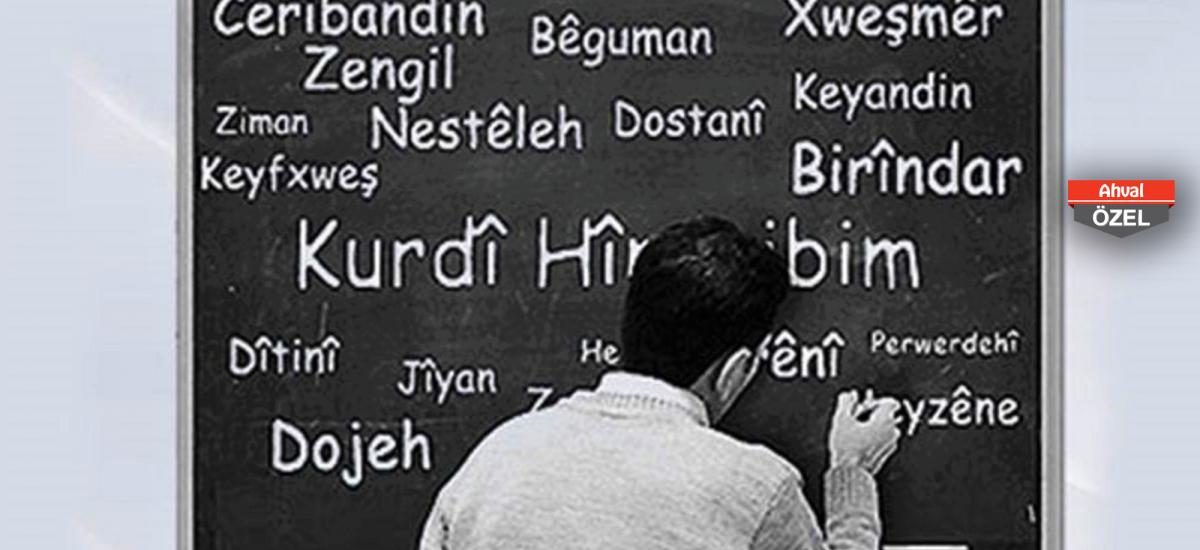 Ceribandin Bêguman Xweşmêr
Zengil Keyandin
Ziman Nestêleh Dostanî
Keyfxweş Birîndar
Kurdî
Dîtinî Jîyan Perwerdehî
Dojeh
Ahval
ÖZEL